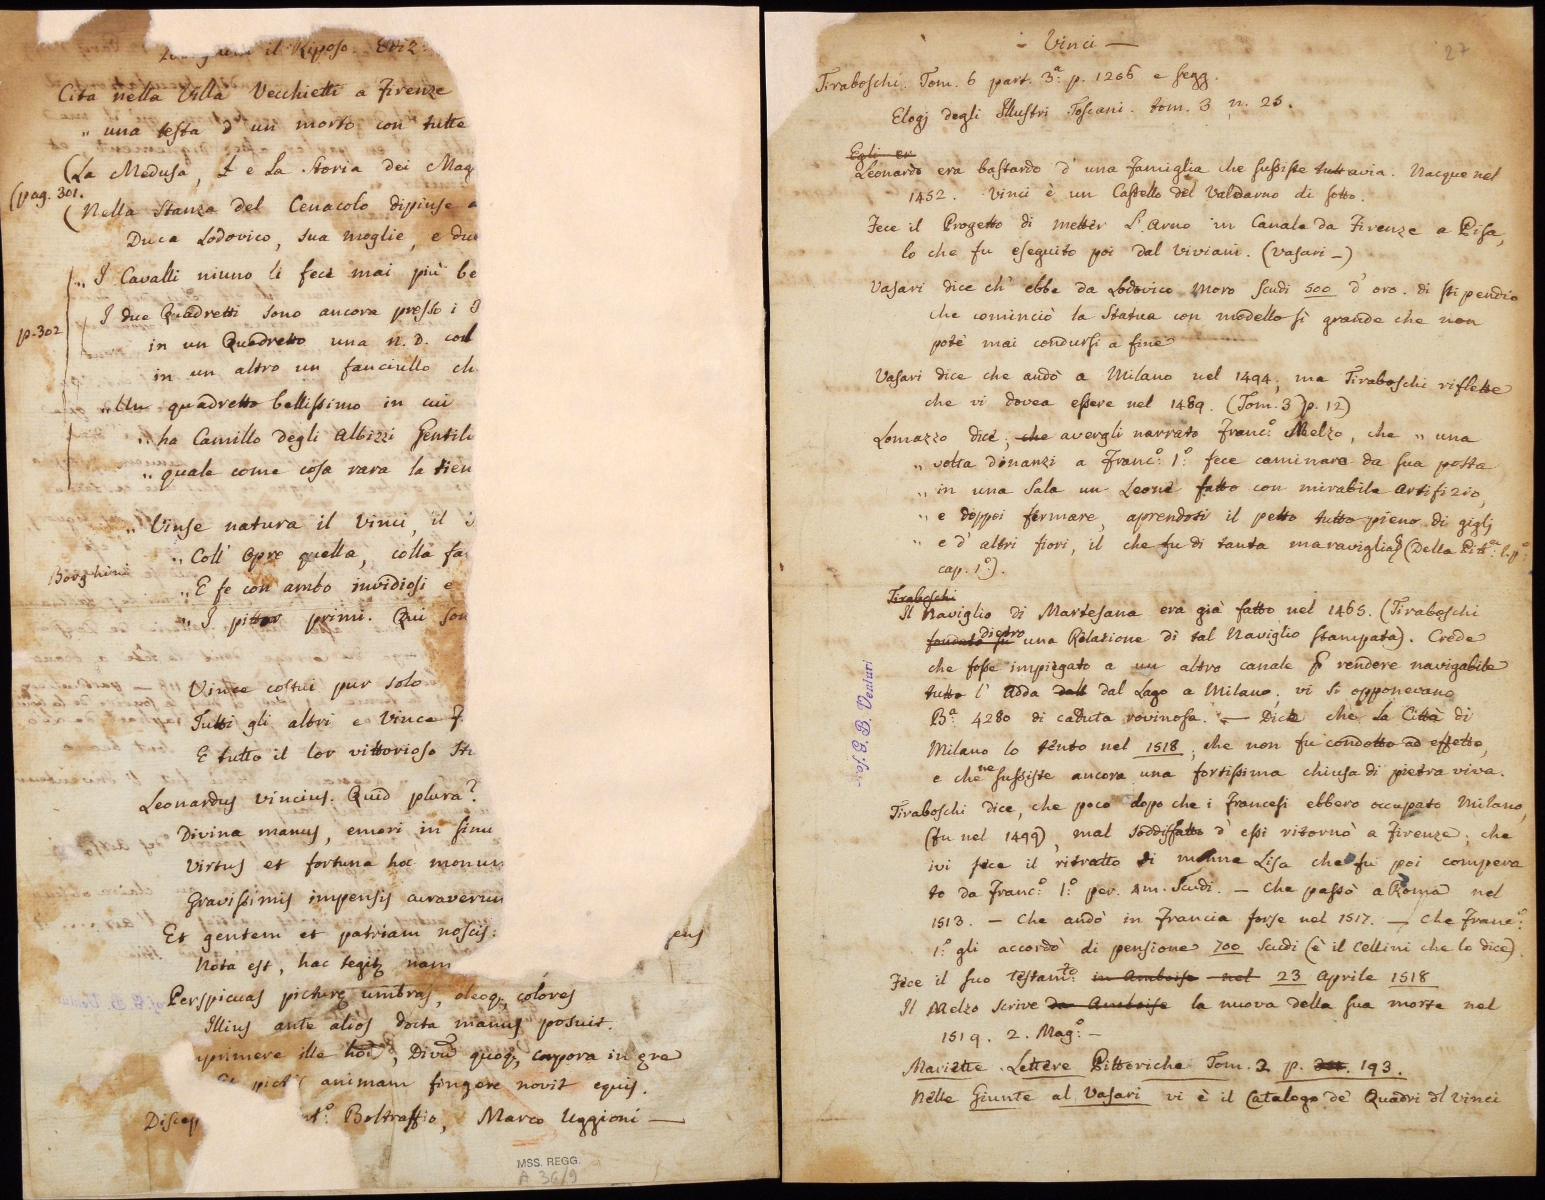 il Riposo. Ediz:
Cita nella Villa Vecchietti a Firenze
„ una testa d'un morto con tutte
(La Medusa, e la Storia dei Mag
(pag. 301.
(Nella Stanza del Cenacolo dipinse
Duca Lodovico, sua moglie, e due
„ I Cavalli niuno li fece mai più be
I due Quadretti sono ancora presso i
p. 302
in un Quadretto una N. D. col
in un altro un fanciullo ch
„ Un quadretto bellissimo in cui
„ ha Camillo degli Albizzi Gentil
„ quale come cosa rara la tien
„ Vinse natura il Vinci, il
„ Coll' opre quella, colla fa
Borghini
„ E fe con ambo invidiosi e
„ I pittor primi. Qui son
Vince costui pur solo
Tutti gli altri e Vince F
E tutto il lor vittorioso Stu
Leonardus Vincius. Quid plura?
Divina manus, emori in sinu
Virtus et fortuna hoc monum
Gravissimis impensis curaverun
Et gentem et patriam noscis:
gens
Nota est, hac tegitʒ nam
Perspicuas picturę umbras, oleoqʒ colores
Illius ante alios docta manus posuit.
primere ille hoĩũ, Divũ quoqʒ corpora in ęre
animam fingere novit equis.
Discep
Boltraffio, Marco Uggioni —
MSS. REGG.
A 36/9
— Vinci —
27
Tiraboschi. Tom. 6 part. 3ª: p. 1206 e segg.
Elogj degli Illustri Toscani. tom. 3 n. 25.
Egli er
Leonardo era bastardo d'una Famiglia che sussiste tuttavia. Nacque nel
1452. Vinci è un Castello del Valdarno di sotto.
Fece il Progetto di metter l'Arno in Canale da Firenze a Pisa,
lo che fu eseguito poi dal Viviani. (Vasari —)
Vasari dice ch'ebbe da Lodovico Moro Scudi 500 d'oro. di stipendio
che cominciò la Statua con modello sì grande che non
potè mai condursi a fine
Vasari dice che andò a Milano nel 1494; ma Tiraboschi riflette
che vi dovea essere nel 1489. (Tom. 3 p. 12)
Lomazzo dice, che avergli narrato Franc:º Melzo, che „ una
„ volta dinanzi a Franc:º 1:º fece caminare da sua posta
„ in una Sala un Leone fatto con mirabile artifizio,
„ e doppoi fermare, aprendosi il petto tutto pieno di giglj
„ e d'altri fiori, il che fu di tanta maraviglia (Della Pitt:ª l. p:º
cap. 1º).
Tiraboschi
Il Naviglio di Martesana era già fatto nel 1465. (Tiraboschi
fondato su dietro una Relazione di tal Naviglio stampata). Crede
che fosse impiegato a un altro canale p rendere navigabile
tutto l'Adda dall dal Lago a Milano; vi si opponevano
Bª: 4280 di caduta rovinosa. — Dice che la Città di
Milano lo tentò nel 1518, che non fu condotto ad effetto,
e che ne sussiste ancora una fortissima chiusa di pietra viva.
Prof. G. B. Venturi
Tiraboschi dice, che poco dopo che i Francesi ebbero occupato Milano,
(fu nel 1499), mal soddisfatto d'essi ritornò a Firenze; che
ivi fece il ritratto di monna Lisa che fu poi compera
to da Franc:º 1:º per 4m. Scudi. — Che passò a Roma nel
1513. — Che andò in Francia forse nel 1517. — Che Franc:º
1:º gli accordò di pensione 700 Scudi (è il Cellini che lo dice).
Fece il suo Testamto: in Amboise nel 23 Aprile 1518
Il Melzo scrive da Amboise la nuova della sua morte nel
1519. 2. Mag:º —
Mariette. Lettere Pittoriche Tom. 2 p. 193.
Nelle Giunte al Vasari vi è il Catalogo de' Quadri di Vinci